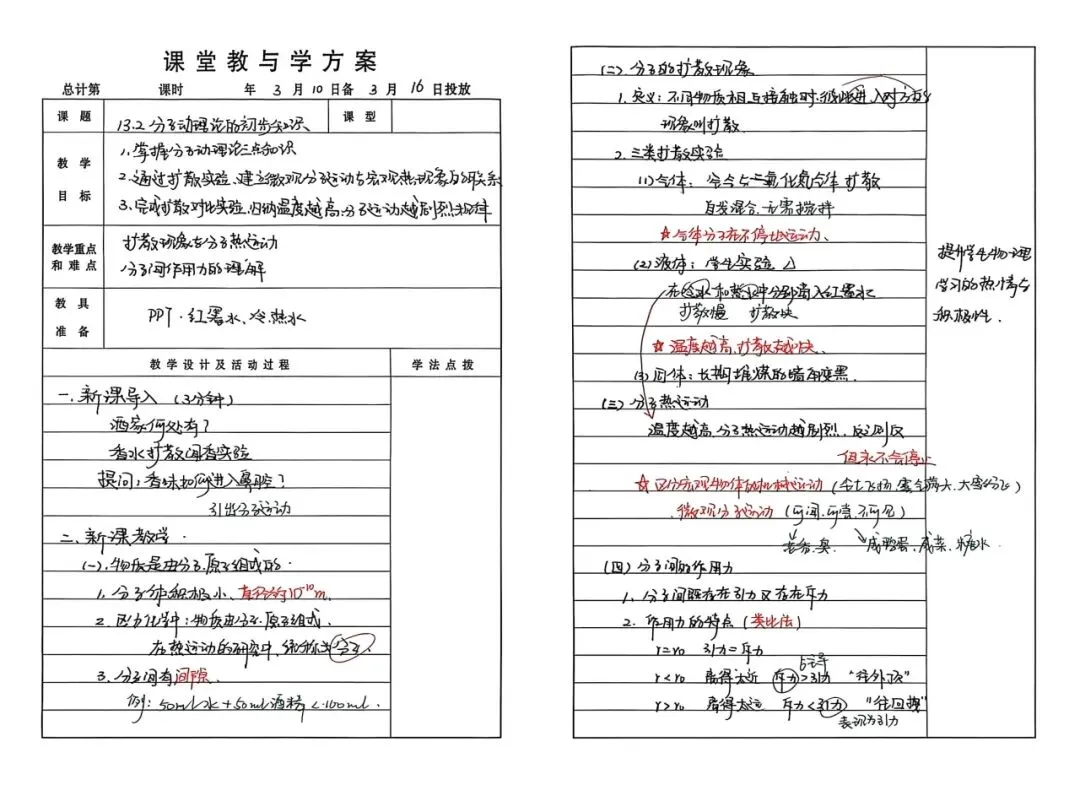 课堂教与学方案
总计第 课时 年 3 月 10 日备 3 月 16 日投放
课题 13.2 分子动理论的初步知识 课型
教学目标
1. 掌握分子动理论三点知识
2. 通过扩散实验、建立微观分子运动与宏观热现象的联系
3. 完成扩散对比实验、归纳温度越高,分子运动越剧烈规律
教学重点和难点
扩散现象与分子热运动
分子间作用力的理解
教具准备
PPT、红墨水、冷热水
教学设计及活动过程 学法点拨
一. 新课导入 (3分钟)
酒家何处有?
香水扩散闻香实验
提问:香味如何进入鼻腔?
引出分子运动
二. 新课教学.
(一). 物质是由分子.原子组成的.
1. 分子体积极小、直径约10⁻¹⁰m.
2. 区分化学中:物质由分子.原子组成.
在热运动的研究中,统称为分子.
3. 分子间有间隙.
例:50ml水+50ml酒精<100ml.
(二) 分子的扩散现象
1. 定义:不同物质相互接触时,彼此进入对方的
现象叫扩散.
2. 三类扩散实验
(1) 气体:空气与二氧化氮气体 扩散
自发混合,无需搅拌
☆气体分子在不停地运动、
(2) 液体:学生实验 △
在冷水和热水中分别滴入红墨水
扩散慢 扩散快
☆温度越高,扩散越快、
(3) 固体:长期堆煤的墙角变黑.
(三) 分子热运动
温度越高,分子热运动越剧烈,反之则反
但永不会停止
☆区分宏观物体的机械运动 (尘土飞扬,雾气大,大雪纷飞)
微观分子运动 (可闻、可尝、不可见)
咸鸭蛋、咸菜、糖水.
(四) 分子间的作用力
1. 分子间既存在引力又存在斥力
2. 作用力的特点 (类比法)
r=r₀ 引力=斥力
r<r₀ 靠得太近 斥力>引力 "往外顶"
r>r₀ 离得太远 斥力<引力 "往回拽"
表现为引力
提升学生物理
学习的热情与
积极性.